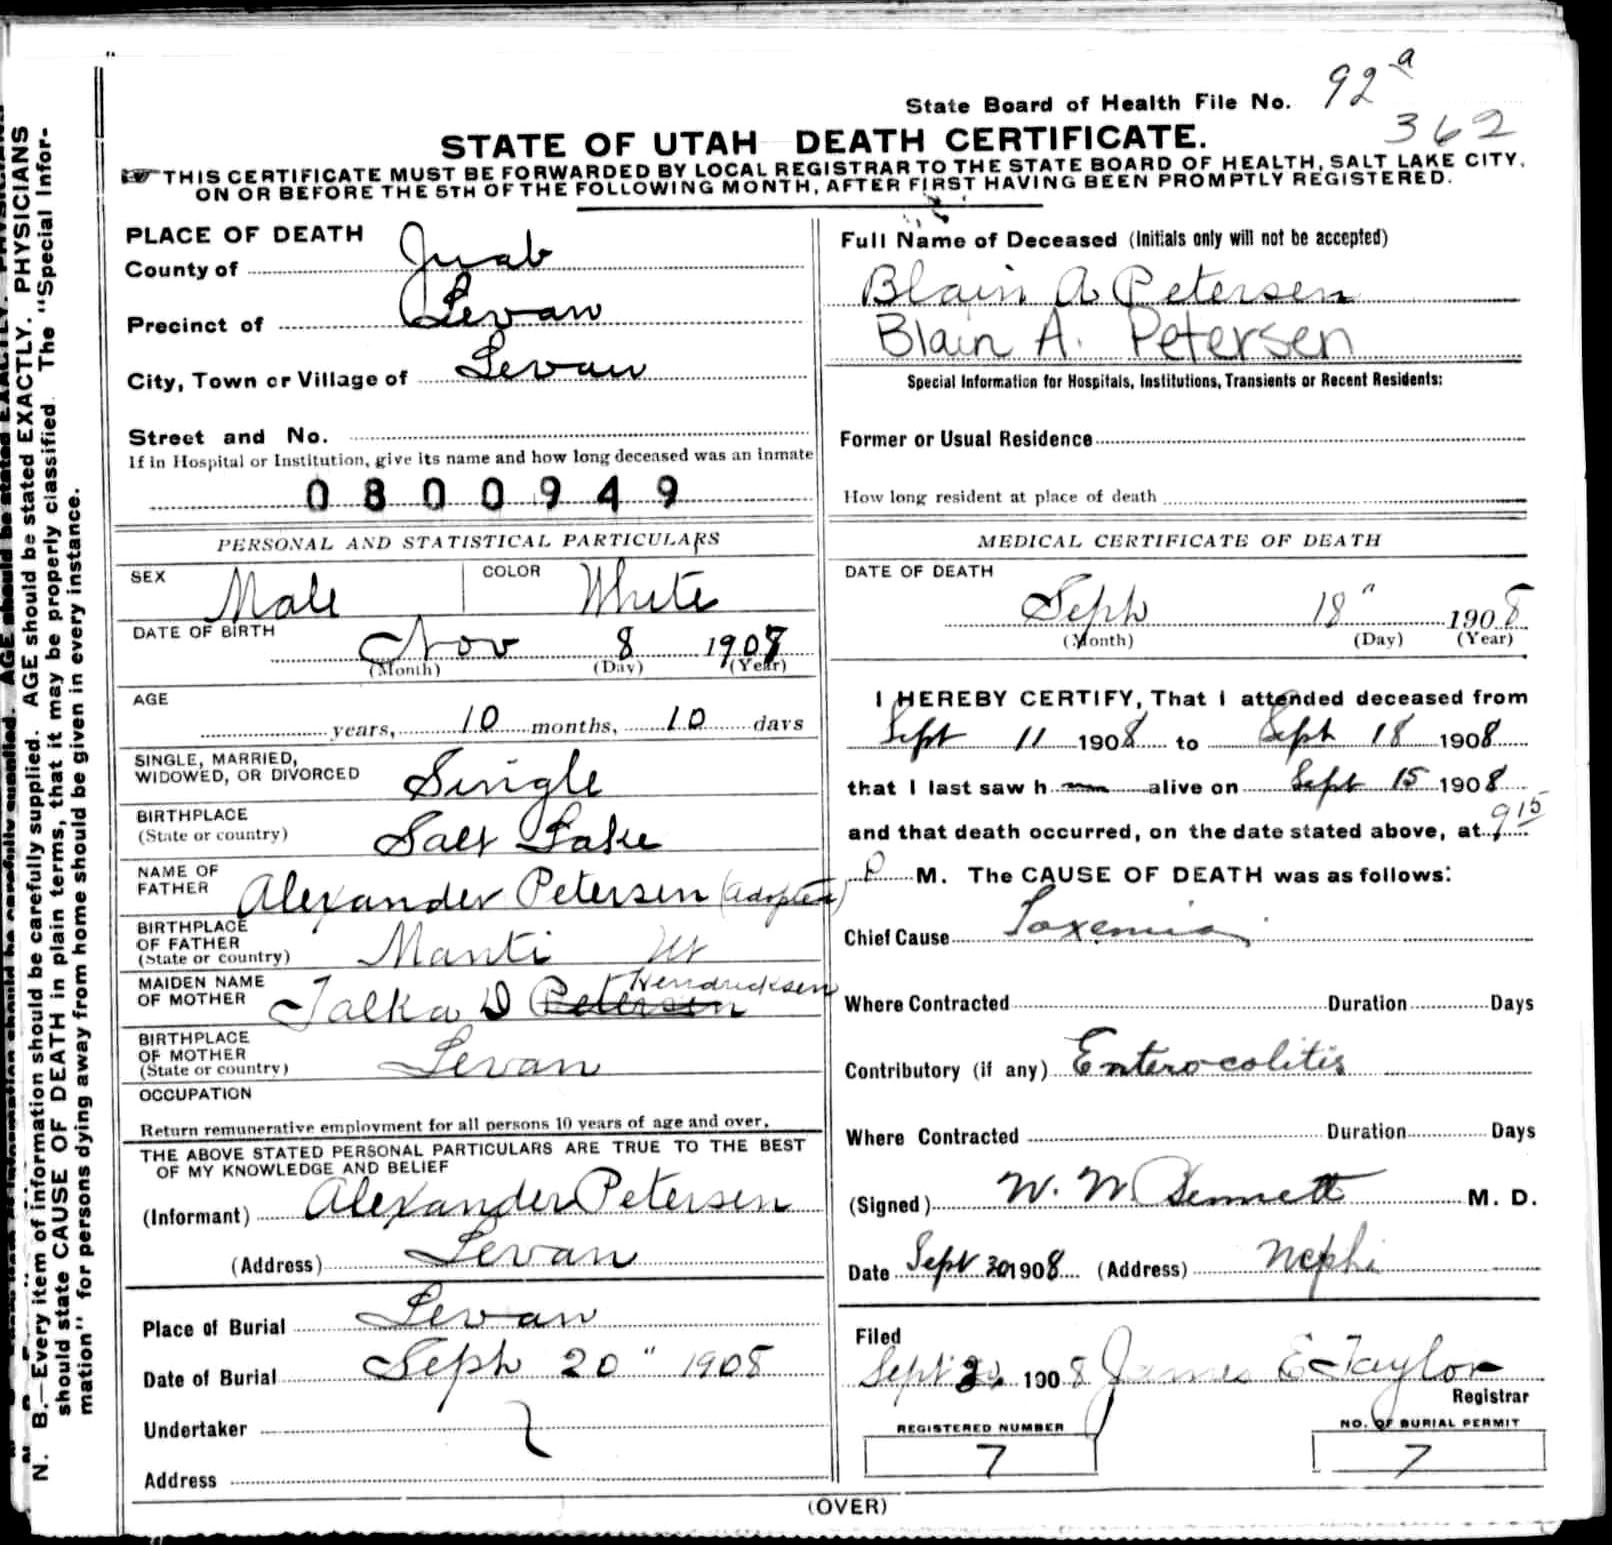 State Board of Health File No. 92 a
362
STATE OF UTAH DEATH CERTIFICATE.
THIS CERTIFICATE MUST BE FORWARDED BY LOCAL REGISTRAR TO THE STATE BOARD OF HEALTH, SALT LAKE CITY,
ON OR BEFORE THE 5TH OF THE FOLLOWING MONTH, AFTER FIRST HAVING BEEN PROMPTLY REGISTERED.
PLACE OF DEATH
County of Juab
Precinct of Levan
City, Town or Village of Levan
Street and No.
If in Hospital or Institution, give its name and how long deceased was an inmate
0800949
PERSONAL AND STATISTICAL PARTICULARS
SEX Male COLOR White
DATE OF BIRTH
Nov 8 1907
(Month) (Day) (Year)
AGE
years, 10 months, 10 days
SINGLE, MARRIED,
WIDOWED, OR DIVORCED Single
BIRTHPLACE
(State or country) Salt Lake
NAME OF
FATHER Alexander Petersen (adopted)
BIRTHPLACE
OF FATHER
(State or country) Manti Ut
MAIDEN NAME Hendricksen
OF MOTHER Talka D Petersen
BIRTHPLACE
OF MOTHER
(State or country) Levan
OCCUPATION
Return remunerative employment for all persons 10 years of age and over.
THE ABOVE STATED PERSONAL PARTICULARS ARE TRUE TO THE BEST
OF MY KNOWLEDGE AND BELIEF
(Informant) Alexander Petersen
(Address) Levan
Place of Burial Levan
Date of Burial Seph 20" 1908
Undertaker
Address
Full Name of Deceased (Initials only will not be accepted)
Blain A Petersen
Blain A. Petersen
Special Information for Hospitals, Institutions, Transients or Recent Residents:
Former or Usual Residence
How long resident at place of death
MEDICAL CERTIFICATE OF DEATH
DATE OF DEATH
Seph 18" 1908
(Month) (Day) (Year)
I HEREBY CERTIFY, That I attended deceased from
Sept 11 1908 to Sept 18 1908
that I last saw h alive on Sept 15 1908
and that death occurred, on the date stated above, at 9 15
P M. The CAUSE OF DEATH was as follows:
Chief Cause Toxemia
Where Contracted Duration Days
Contributory (if any) Enterocolitis
Where Contracted Duration Days
(Signed) W. W. Bennett M. D.
Date Sept 30 1908 (Address) Nephi
Filed
Sept 1908 James E Taylor
Registrar
REGISTERED NUMBER
7
NO. OF BURIAL PERMIT
7
(OVER)
N. B.—Every item of information should be carefully supplied. AGE should be stated EXACTLY. PHYSICIANS
should state CAUSE OF DEATH in plain terms, that it may be properly classified. The "Special Infor-
mation" for persons dying away from home should be given in every instance.